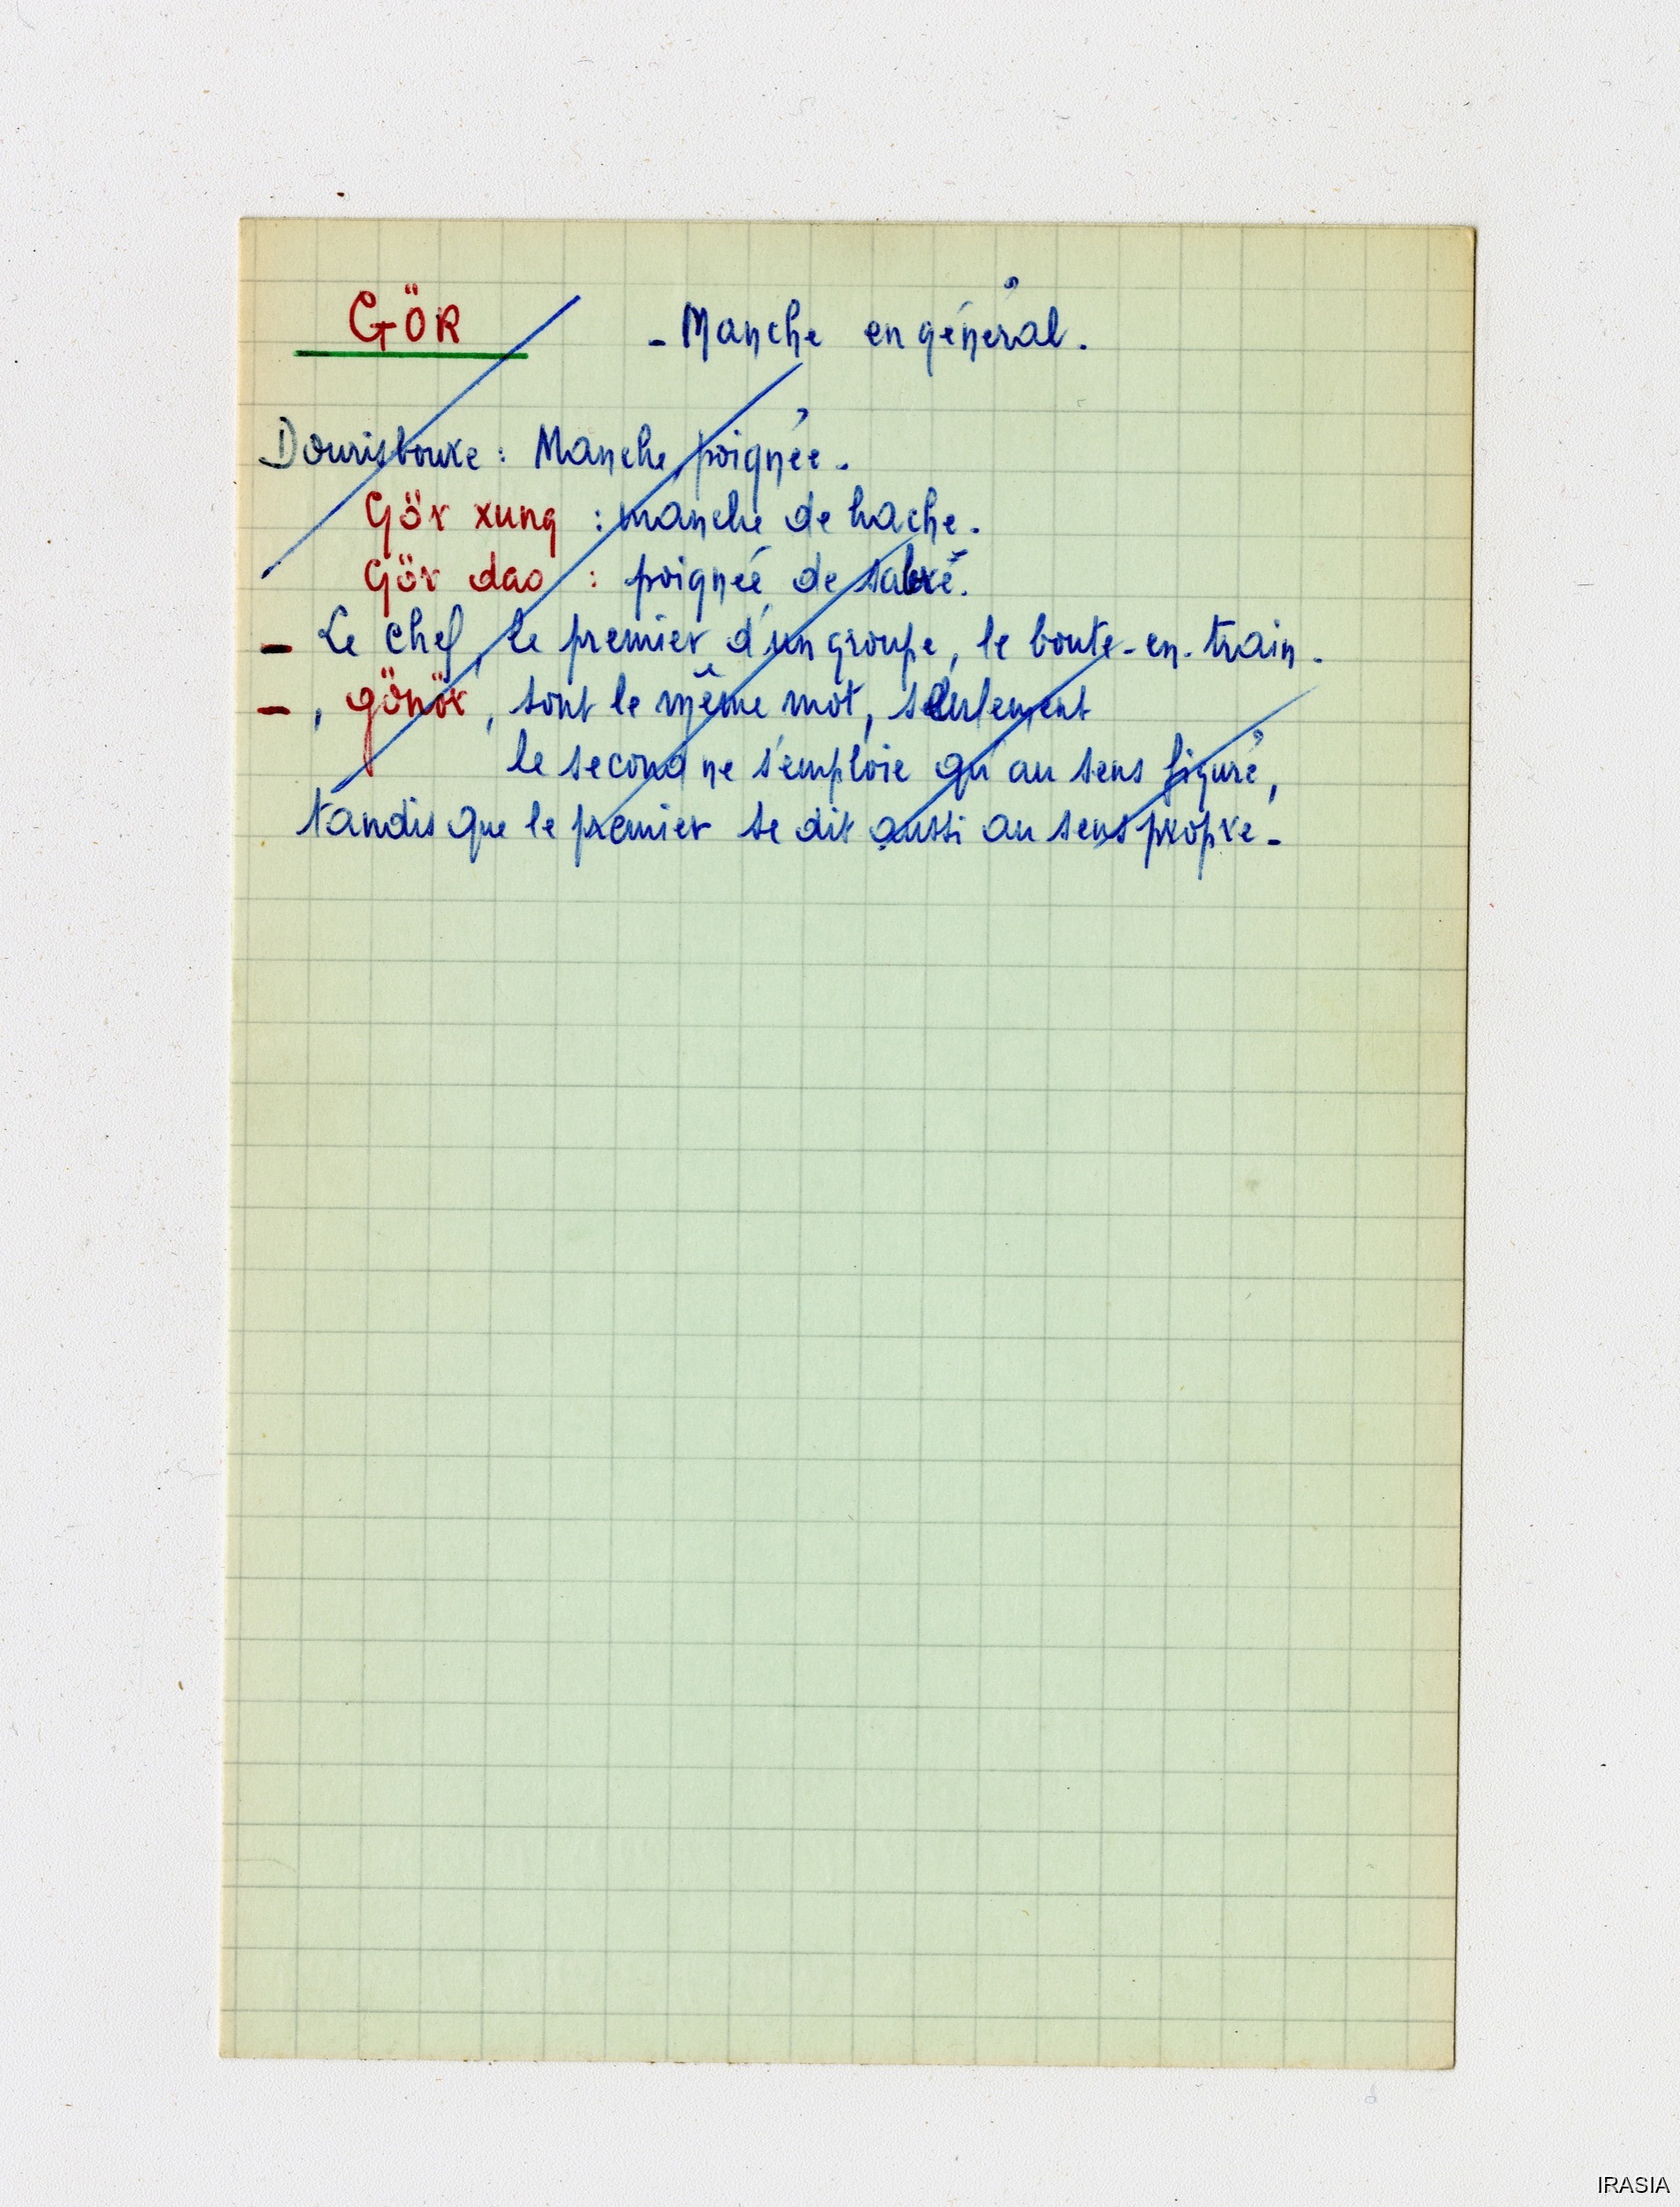 GÖR - Manche en général.
Dourisboure : Manche, poignée.
Gör xung : manche de hache.
Gör dao : poignée de sabre.
- Le chef, le premier d'un groupe, le boute-en-train.
- , gönör, sont le même mot, seulement
le second ne s'emploie qu'au sens figuré,
tandis que le premier se dit aussi au sens propre.
IRASIA